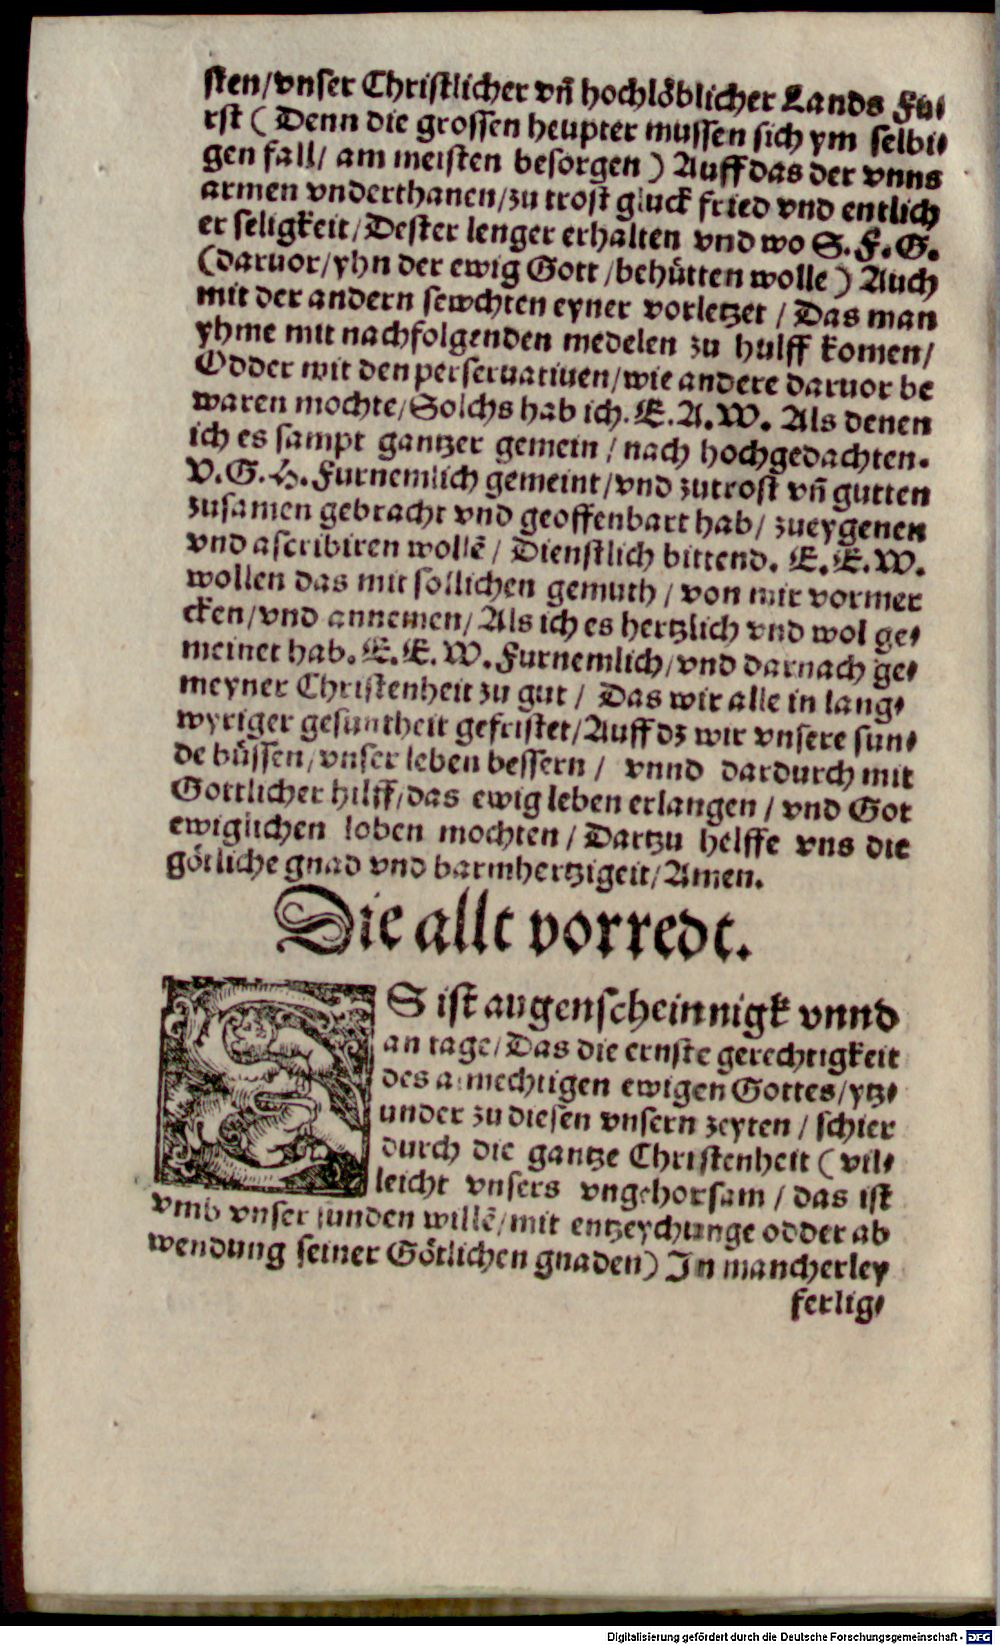 sten/vnser Christlicher vñ hochlöblicher Lands Fü⸗
rst ( Denn die grossen heupter mussen sich ym selbi⸗
gen fall/ am meisten besorgen ) Auff das der vnns
armen vnderthanen/zu trost gluck fried vnd entlich
er seligkeit/Dester lenger erhalten vnd wo S.F.G.
(daruor/yhn der ewig Gott/behütten wolle) Auch
mit der andern sewchten eyner vorletzet / Das man
yhme mit nachfolgenden medelen zu hulff komen/
Odder mit den perseruatiuen/wie andere daruor be
waren mochte/Solchs hab ich. E.A.W. Als denen
ich es sampt gantzer gemein / nach hochgedachten.
V.G.H.Furnemlich gemeint/vnd zutrost vñ gutten
zusamen gebracht vnd geoffenbart hab/ zueygenen
vnd ascribiren wollẽ/ Dienstlich bittend. E.E.W.
wollen das mit sollichen gemuth / von mir vormer
cken/vnd annemen/ Als ich es hertzlich vnd wol ge⸗
meinet hab. E.E.W.Furnemlich/vnd darnach ge⸗
meyner Christenheit zu gut / Das wir alle in lang⸗
wyriger gesuntheit gefristet/Auff dz wir vnsere sun⸗
de büssen/vnser leben bessern / vnnd dardurch mit
Gottlicher hilff/das ewig leben erlangen / vnd Got
ewiglichen loben mochten / Dartzu helffe vns die
götliche gnad vnd barmhertzigeit/Amen.
Die allt vorredt.
ES ist augenscheinnigk vnnd
an tage/Das die ernste gerechtigkeit
des almechtigen ewigen Gottes/ytz⸗
under zu diesen vnsern zeyten / schier
durch die gantze Christenheit ( vil⸗
leicht vnsers vngehorsam / das ist
vmb vnser sunden willẽ/mit entzeychunge odder ab
wendung seiner Götlichen gnaden) In mancherley
ferlig⸗
Digitalisierung gefördert durch die Deutsche Forschungsgemeinschaft - DFG